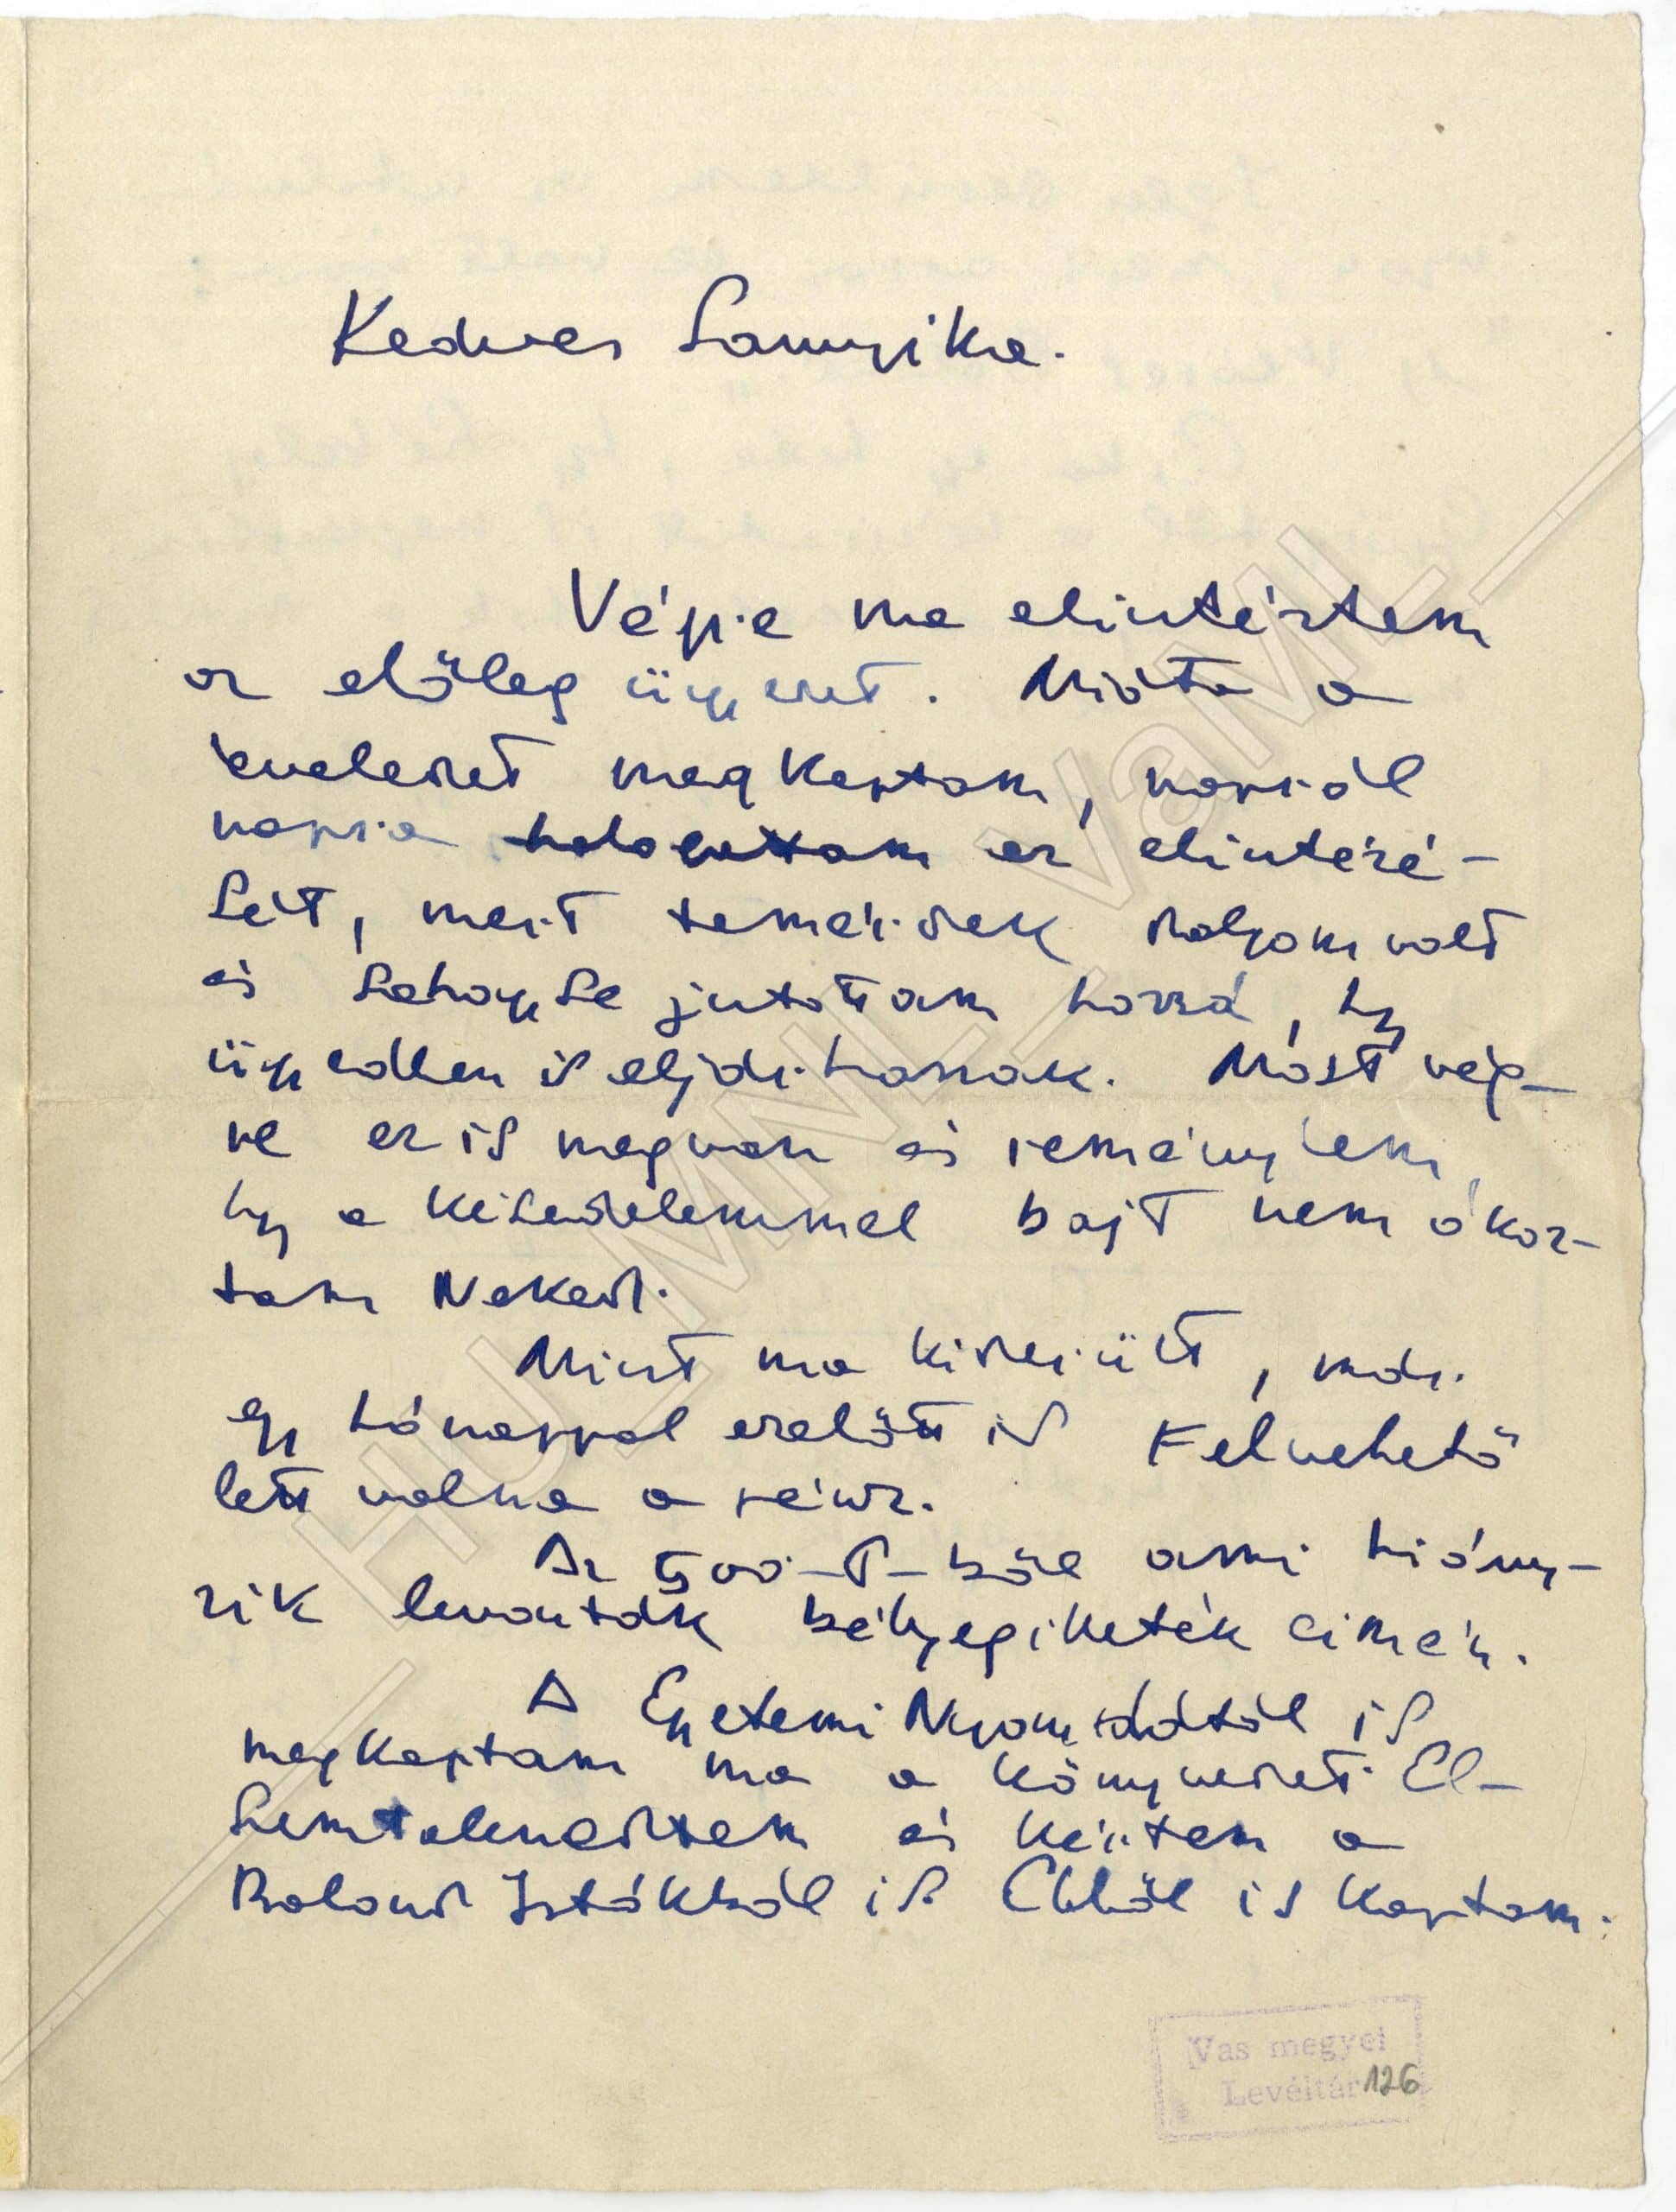 Kedves Sanyika.
Végre ma elintéztem
az előleg ügyedet. Mióta a
leveledet megkaptam, napról
napra halogattam ez elintézé-
sét, mert temérdek dolgom volt
és sehogyse jutottam hozzá, hy
ügyedben is eljárhassak. Most vég-
re ez is megvan és remélem,
hy a késedelemmel bajt nem okoz-
tam Neked.
Mint ma kiderült, már
egy hónappal ezelőtt is felvehető
lett volna a pénz.
Az 500-P-ből ami hiány-
zik levonták bélyegilleték címén.
A Egyetemi Nyomdától is
megkaptam ma a könyvedet. El-
lentételeztem és kértem a
Bolond Istókból is. Ebből is kaptam.
Vas megyei
Levéltár 126
HU_MNL_VaML_